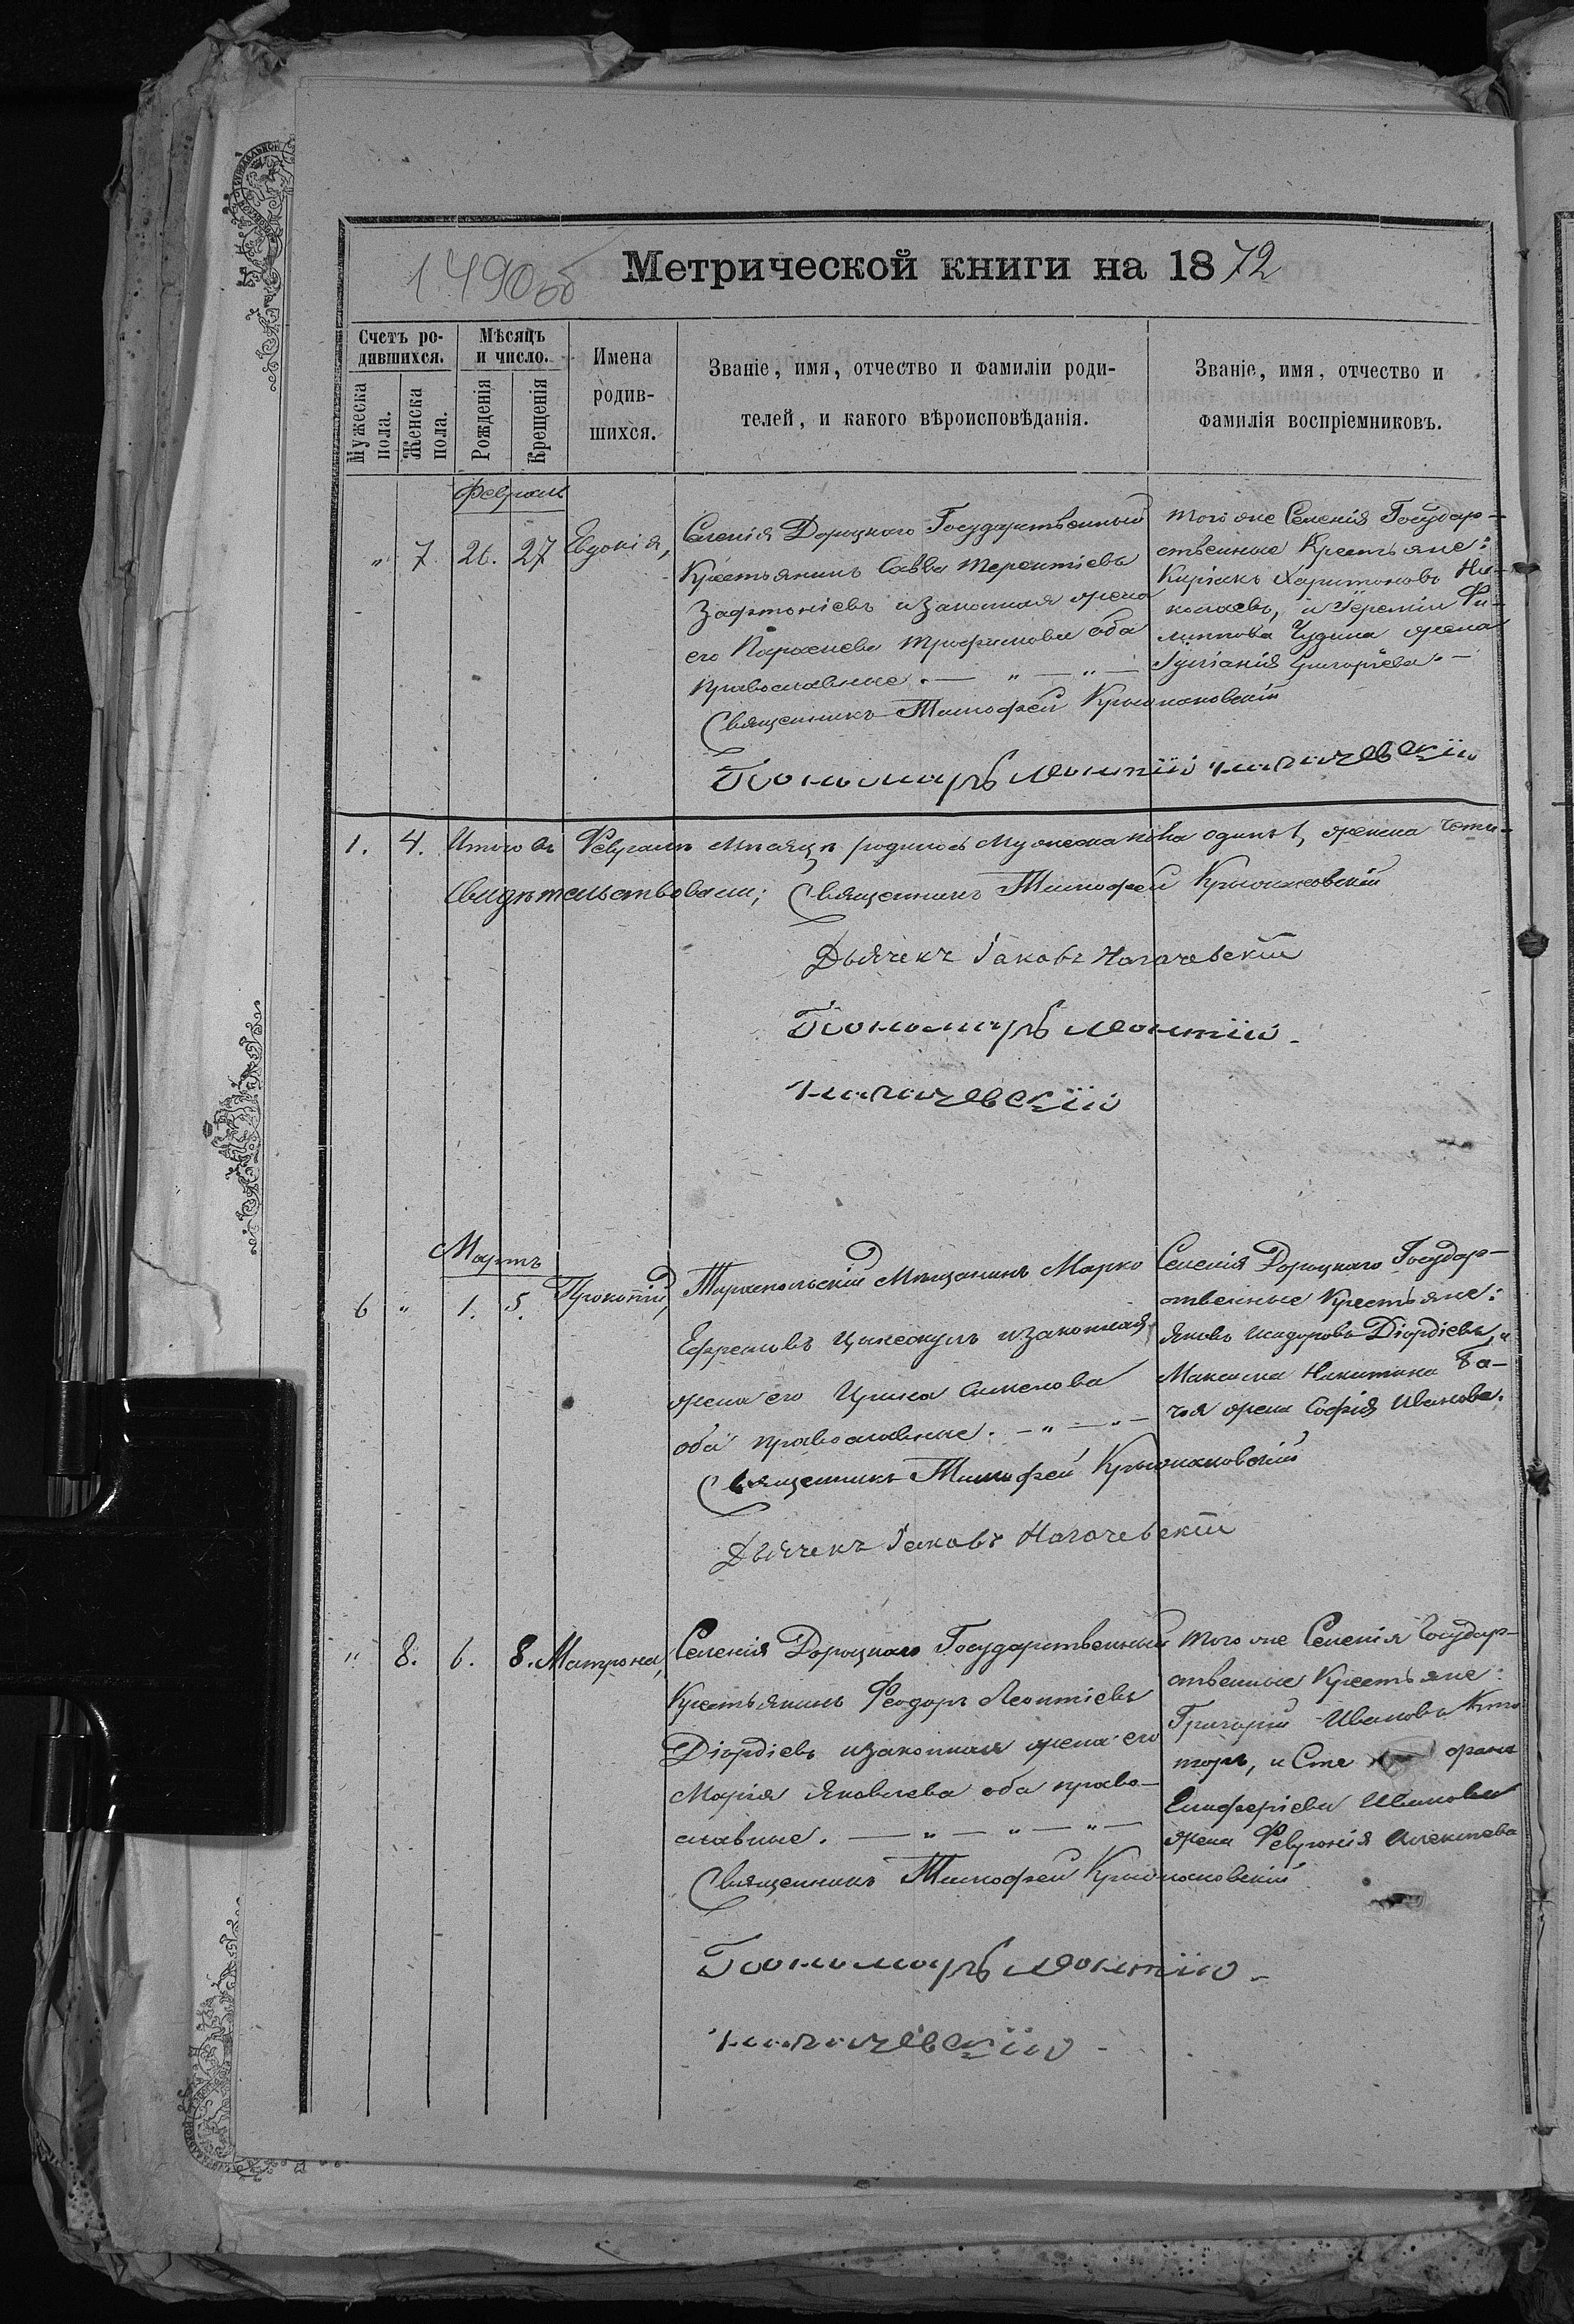 1490об Метрической книги на 1872
Счетъ ро-
дившихся.
Мѣсяцъ
и число.
Мужеска
пола.
Женска
пола.
Рожденія
Крещенія
Имена
родив-
шихся.
Званіе, имя, отчество и фамиліи роди-
телей, и какого вѣроисповѣданія.
Званіе, имя, отчество и
фамилія воспріемниковъ.
Февраль
" 7. 26. 27 Евдокія,
Селенія Дороцкаго Государственный
Крестьянинъ Савва Терентіевъ
и законная жена
его Параскева Трофимова оба
православные. — " — " —
того же Селенія Государ-
ственные Крестьяне:
Киріакъ Харитоновъ Ни-
колаевъ, и Іереміи Фи-
липпова Чудина жена
Іуліанія Григоріева. —
Священникъ Тимофей Крыжановскій
Пономарь Леонтій Нагачевскій
1. 4. Итого въ Февралѣ Мѣсяцѣ родилось Мужеска пола одинъ 1, женска четы-
Свидѣтельствовали; Священникъ Тимофей Крыжановскій
Дьячекъ Іаковъ Нагачевскій
Пономарь Леонтій.
Нагачевскій
Мартъ
6 " 1. 5. Прокопій,
Тираспольскій Мѣщанинъ Марко
Ефремовъ и законная
жена его Ирина Симеонова
оба православные. — " — " —
Селенія Дороцкаго Государ-
ственные Крестьяне:
Яковъ Исидоровъ Діордіевъ, и
Максима Никитина Га-
жена Софія Иванова.
Священникъ Тимофей Крыжановскій
Дьячекъ Іаковъ Нагачевскій
" 8. 6. 8. Матрона,
Селенія Дороцкаго Государственный
Крестьянинъ Феодоръ Леонтіевъ
Діордіевъ и законная жена его
Марія Яковлева оба право-
славные. — " — " — " —
Того же Селенія Государ-
ственные Крестьяне:
Григорій Ивановъ Кти-
торъ, и Сте
Елиферіева Иванова
жена Февронія Алексѣева
Священникъ Тимофей Крыжановскій
Пономарь Леонтій.
Нагачевскій